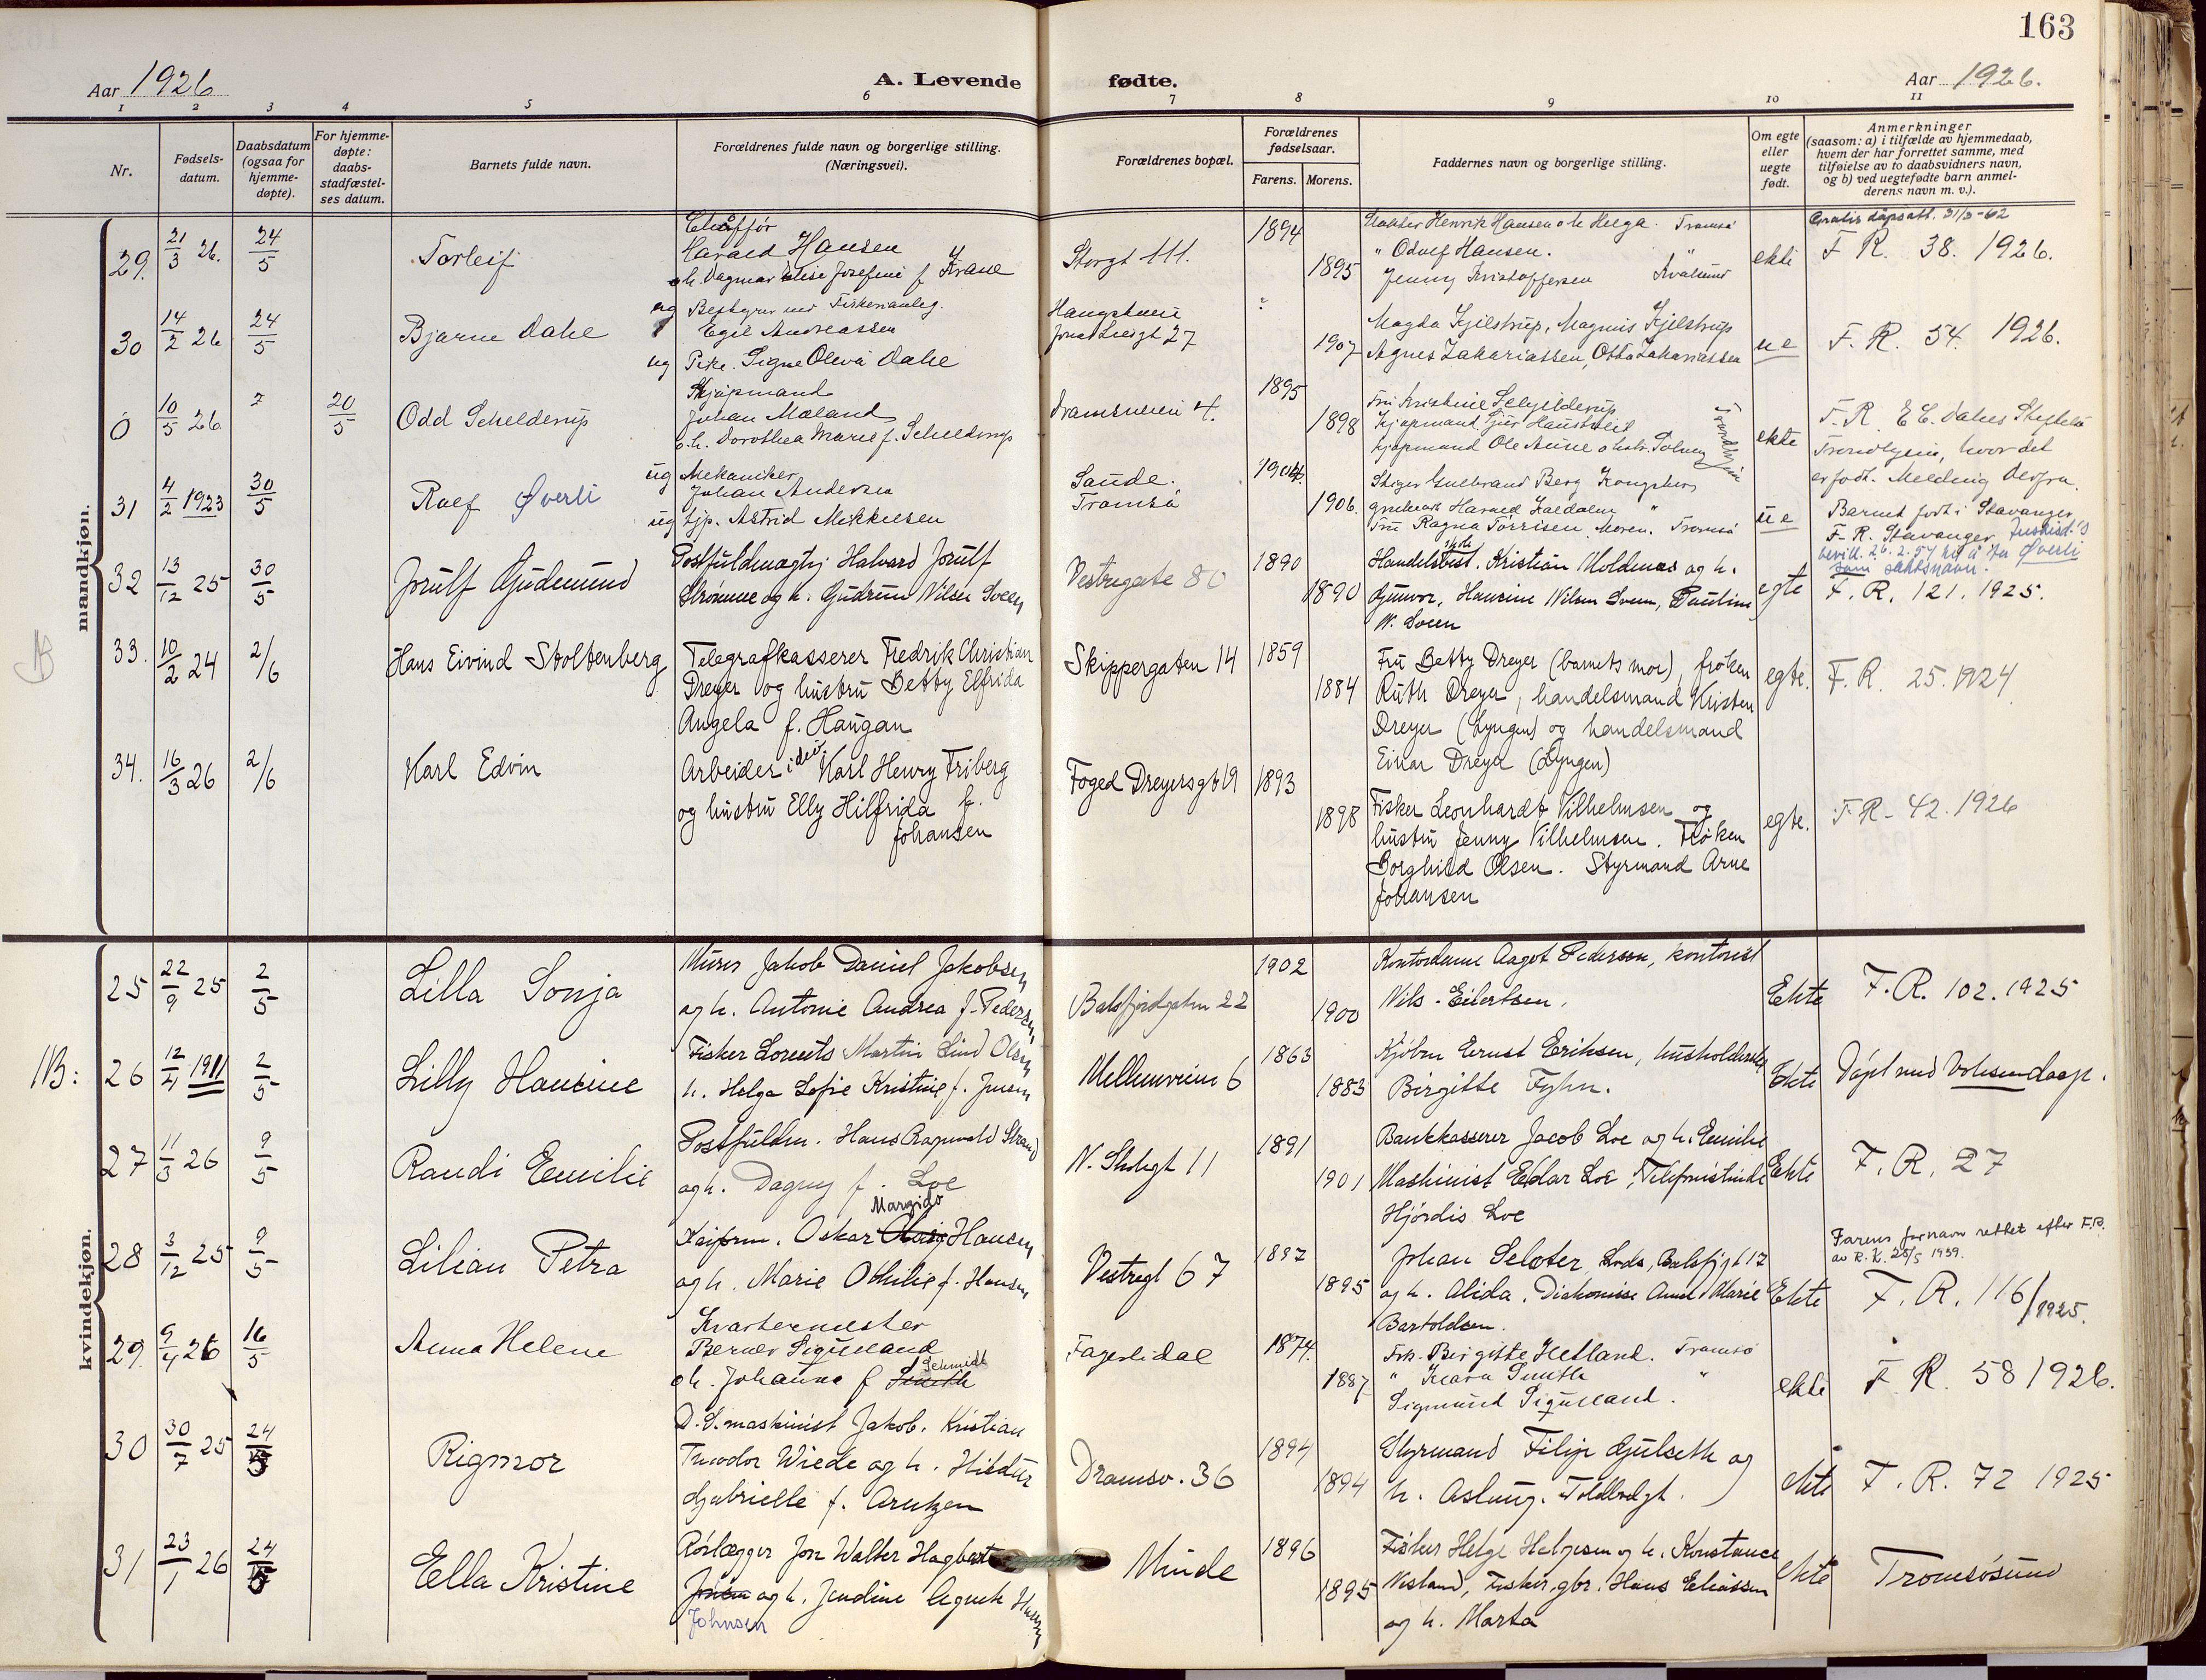 163
Aar 1926
A. Levende fødte.
Aar 1926.
1 2 3 4 5 6 7 8 9 10 11
Nr.
Fødsels-
datum.
Daabsdatum
(ogsaa for
hjemme-
døpte).
For hjemme-
døpte:
daabs-
stadfæstel-
ses datum.
Barnets fulde navn.
Forældrenes fulde navn og borgerlige stilling.
(Næringsvei).
Forældrenes bopæl.
Forældrenes
fødselsaar.
Farens. Morens.
Faddernes navn og borgerlige stilling.
Om egte
eller
uegte
født.
Anmerkninger
(saasom: a) i tilfælde av hjemmedaab,
hvem der har forrettet samme, med
tilføielse av to daabsvidners navn,
og b) ved uegtefødte barn anmel-
derens navn m. v.).
mandkjøn.
29. 21/3 26. 24/5
Torleif
Harald Hansen
Storgt 111.
1894
1895
Henrik Hansen o h Helga. Tromsø
" Odolf Hansen. "
Jenny Kristoffersen Kvalsund
ekte
31/3-62
F R. 38. 1926.
30 14/2 26 24/5
Bjarne Dahl
ug
Egil Andreassen
ug Pike. Signe Oleva Dahl
1907
Magda Kjilstrup, Magnus Kjilstrup
Agnes Zakariassen, Otto Zakariassen
ue
F. R. 54. 1926.
0 10/5 26 ? 20/5
Odd Schelderup
Kjøpmand
Johan Moland
o.h. Dorothea Marie f. Schelderup
Dramsveien 4.
1895
1898
Fru Kristine Schjelderup
ekte
Trondhjem, hvor det
er født. Melding derfra.
31 4/2 1923 30/5
Rolf Øverli
ug Mekaniker
Johan Andersen
ug tjp. Astrid Mikkelsen
Sande.
Tromsø
1904
1906.
Stiger Gulbrand Berg Kongsberg
Fru Ragna Törrisen. Moren. Tromsø
ue
Barnet født i Stavanger
F. R. Stavanger
Øverli
32 13/12 25 30/5
Jorulf Gudmund
Postfuldmægtig Halvard Jorulf
Strømme og h. Gudrun Nilsen Soeen
Vestregate 80
1890
1890
Handelsbest. Kristian Moldenæs og h.
Gunvor, Hansine Nilsen Soeen, Pauline
N. Soeen
egte
F. R. 121. 1925.
33. 10/2 24 2/6
Hans Eivind Stoltenberg
Telegrafkasserer Fredrik Christian
Dreyer og hustru Betty Elfrida
Angela f. Haugan
Skippergaten 14
1859
1884
Fru Betty Dreyer (barnets mor), frøken
Ruth Dreyer, handelsmand Kristen
Dreyer (Lyngen) og handelsmand
Einar Dreyer (Lyngen)
egte.
F. R. 25. 1924
34. 16/3 26 2/6
Karl Edvin
Arbeider Karl Henry Friberg
og hustru Elly Hilfrida f.
Johansen
Foged Dreyersgt 19
1893
1898
Fisker Leonhardt Vilhelmsen og
hustru Jenny Vilhelmsen. Frøken
Borghild Olsen. Styrmand Arne
Johansen
egte.
F. R. 42. 1926
kvindekjøn.
25 22/9 25 2/5
Lilla Sonja
Murer Jakob Daniel Jakobsen
og h. Antonie Andrea f. Pedersen
Balsfjordgaten 22
1902
1900
Kontordame Aagot Pedersen, kontorist
Nils Eilertsen.
Ekte
F. R. 102. 1925
NB: 26 12/4 1911 2/5
Lilly Hansine
Fisker Lorents Martin Lind Olsen
h. Helga Sofie Kristine f. Jensen
Mellemveien 6
1863
1883
Kjøbm Ernst Eriksen, husholderske
Birgitte Fyhn.
Ekte
Døpt med Voksendaap.
27 11/3 26 9/5
Randi Emilie
Postfuldm. Hans Ragnvald Strand
og h. Dagny f. Loe
N. Skolegt 11
1891
1901
Bankkasserer Jacob Loe og h. Emilie
Maskinist Edlar Loe, Telefonistinde
Hjördis Loe
Ekte
F. R. 27
28 3/12 25 9/5
Lilian Petra
Margido
Oskar Hansen
og h. Marie Othilie f. Hansen
Vestregt 67
1897
1895
og h. Alida. Diakonisse Anna Marie
Bartoldsen.
Ekte
Farens fornavn rettet efter F.R.
av R. K. 25/5 1939.
F. R. 116/1925.
29. 9/4 26 16/5
Anna Helene
Kvartermester
Schmidt
oh. Johanna f Smith
Fagerlidal
1874.
1887
Frk. Birgitte Hetland. Tromsø
" Klara Smith "
ekte
F. R. 58 1926.
30 30/7 25 24/5
Rigmor
D. S. maskinist Jakob. Kristian
Teodor Wiede og h. Hildur
Gabrielle f. Arntzen
Dramsv. 36
1894
1894
Styrmand Filip Gulseth og
h. Aslaug. Toldbodgt.
ekte
F. R. 72 1925
31 23/1 26 24/5
Ella Kristine
Rörlægger Jon Walter Hagbart
og h. Jendine Agnete
Johnsen
Minde
1896
1895
Fisker Helge Helgesen og h. Konstance
Nesland, Fisker, gbr. Hans Eliassen
og h. Marta
ekte
Tromsøsund